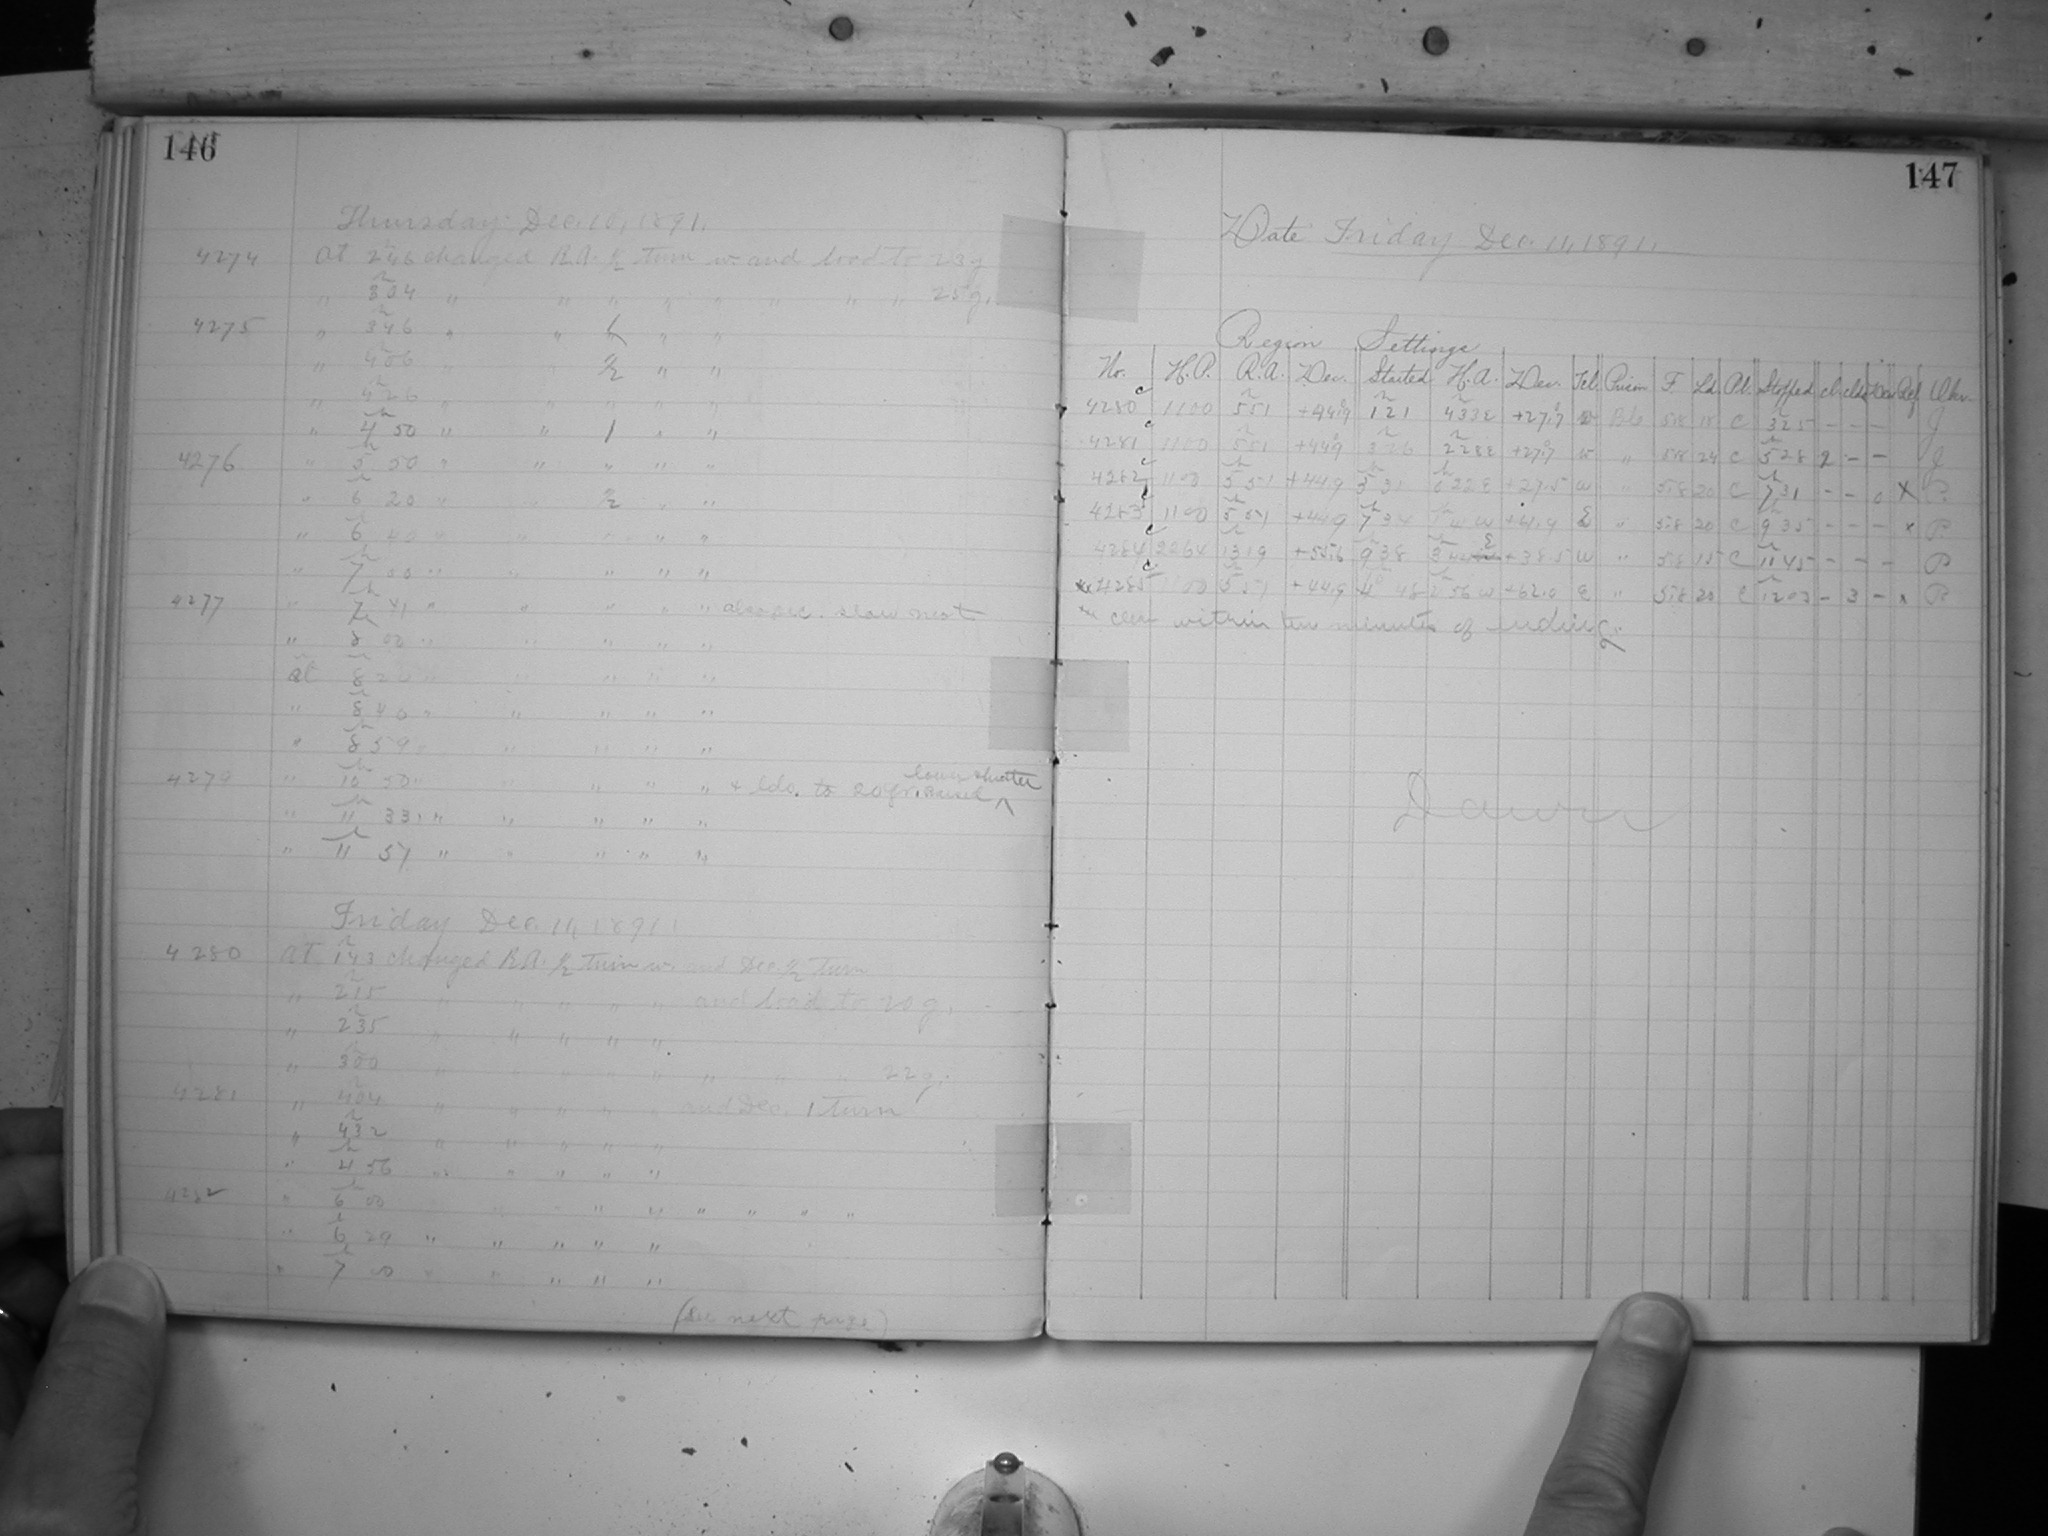 146
Thursday Dec. 10, 1891.
4274 at 2h46 changed R.A. ½ turn w. and load to 23 g
" 3h04 " " " " " " " " 25 g.
4275 " 3h46 " " " "
" 4h06 " " ½ " "
" 4h26 " " " " "
" 4h50 " " 1 " "
4276 " 5h50 " " " " "
" 6h20 " ½ " "
" 6h40 " " " " "
" 7h00 " " " " "
4277 " 7h41 " " " " " slow
" 8h00 " " " " "
at 8h " " " " "
" 8h40 " " " " "
" 8h59 " " " " "
4279 " 10h50 " " " " " + ldo. to 20 gr. raised lower shutter
" 11h33 " " " " "
" 11h57 " " " " "
Friday Dec. 11, 1891.
4280 at 1h43 changed R.A. ½ turn w. and Dec. ½ turn
" 2h15 " " " " " and load to 20 g.
" 2h35 " " " " "
" 3h00 " " " " " " " " 22 g.
4281 " 4h04 " " " " " and Dec. 1 turn
" 4h32 " " " " "
" 4h56 " " " " "
4282 " 6h00 " " " " " " " "
" 6h29 " " " " "
" 7h00 " " " " "
(see next page)
147
Date Friday Dec. 11, 1891.
Region Settings
No. H.P. R.A. Dec. Started H.A. Dec. Tel. Prism F. Ld. Pl. Stopped cl. clds Ref. Obser.
4280 1100 5h51 +44.9 1h21 4h33E +27.7 w 518 18 C 3h25 - - - J
4281 1100 5h51 +44.9 3h26 2h28E +27.7 w " 518 24 C 5h28 2 - - J
4282 1100 5h51 +44.9 5h31 0h22E +27.5 w " 518 20 C 7h31 - - 0 x P.
4283 1100 5h51 +44.9 7h34 1h W +61.9 E " 518 20 C 9h35 - - - x P
4284 2264 13h19 +55.6 9h38 3h E +38.5 w " 518 15 C 11h45 - - - P
* 4285 1100 5h51 +44.9 48 56 w +62.0 E " 518 20 C 12h03 - 3 - x P
* clear within two minutes of ending.
Dawn